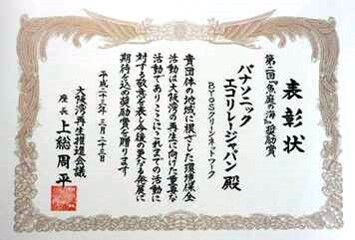 表彰状
第二回『魚庭の海』奨励賞
パナソニック
エコリレージャパン 殿
BYQSクリーンネットワーク
貴団体の地域に根ざした環境保全
活動は大阪湾の再生に向けた重要な
活動でありここにこれまでの活動に
対する敬意を表し今後の更なる発展に
期待を込め奨励賞を贈ります
平成二十三年 三月二十三日
大阪湾再生推進会議
座長 上総周平